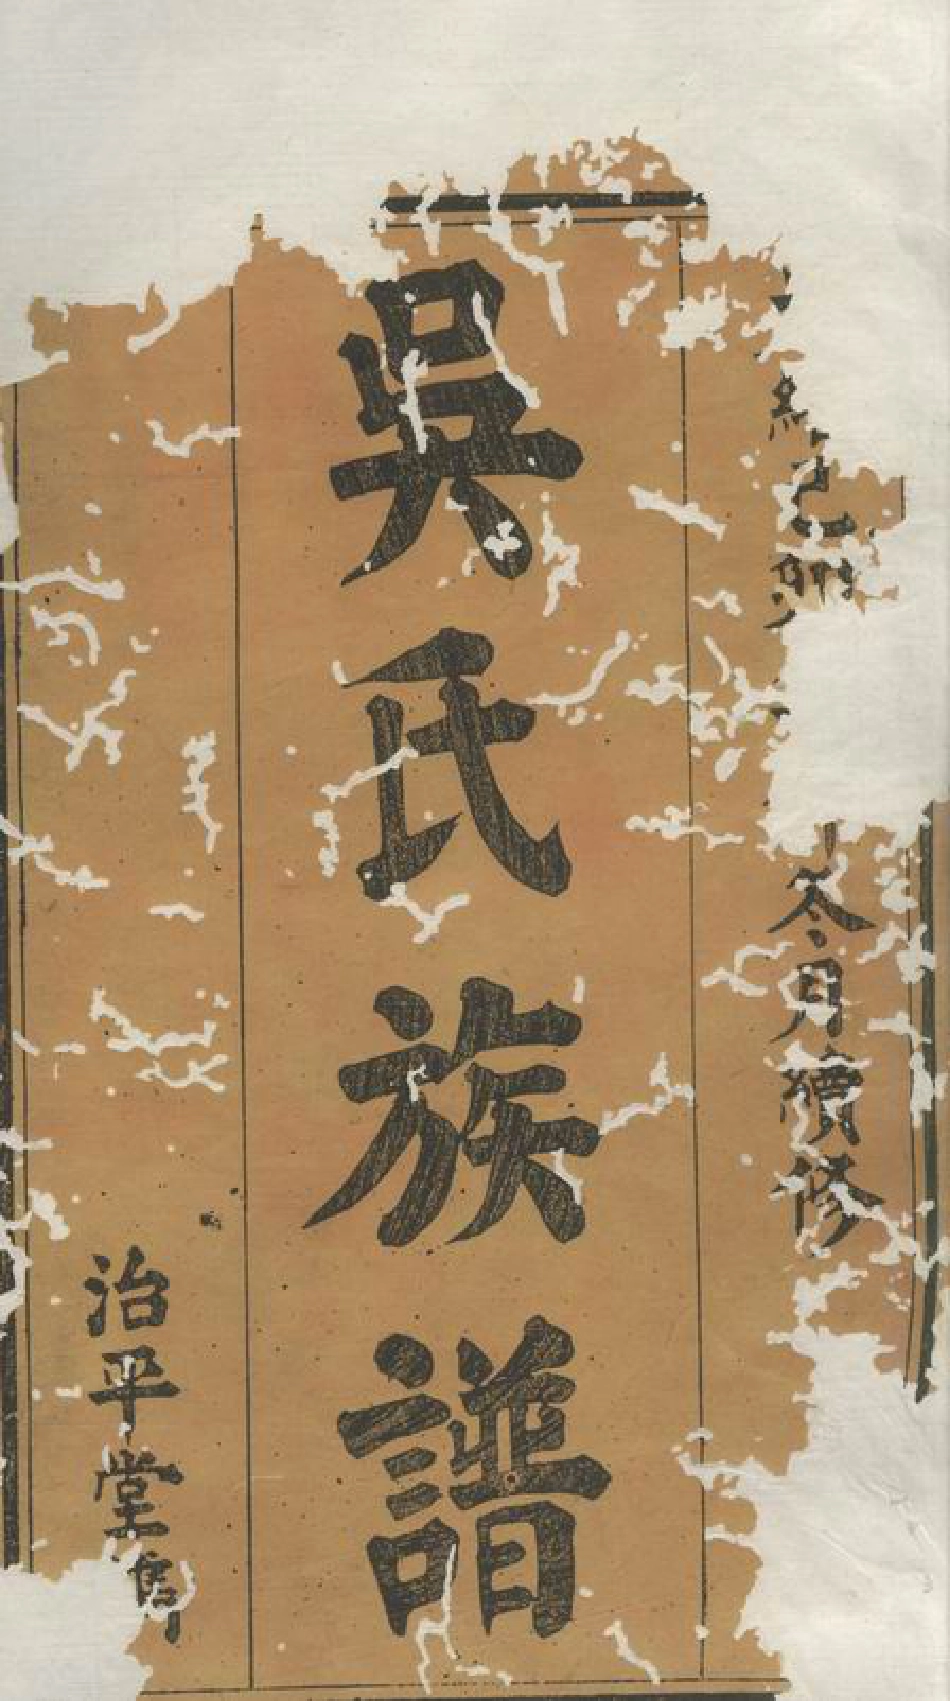 己卯
冬月續修
吳氏族譜
治平堂